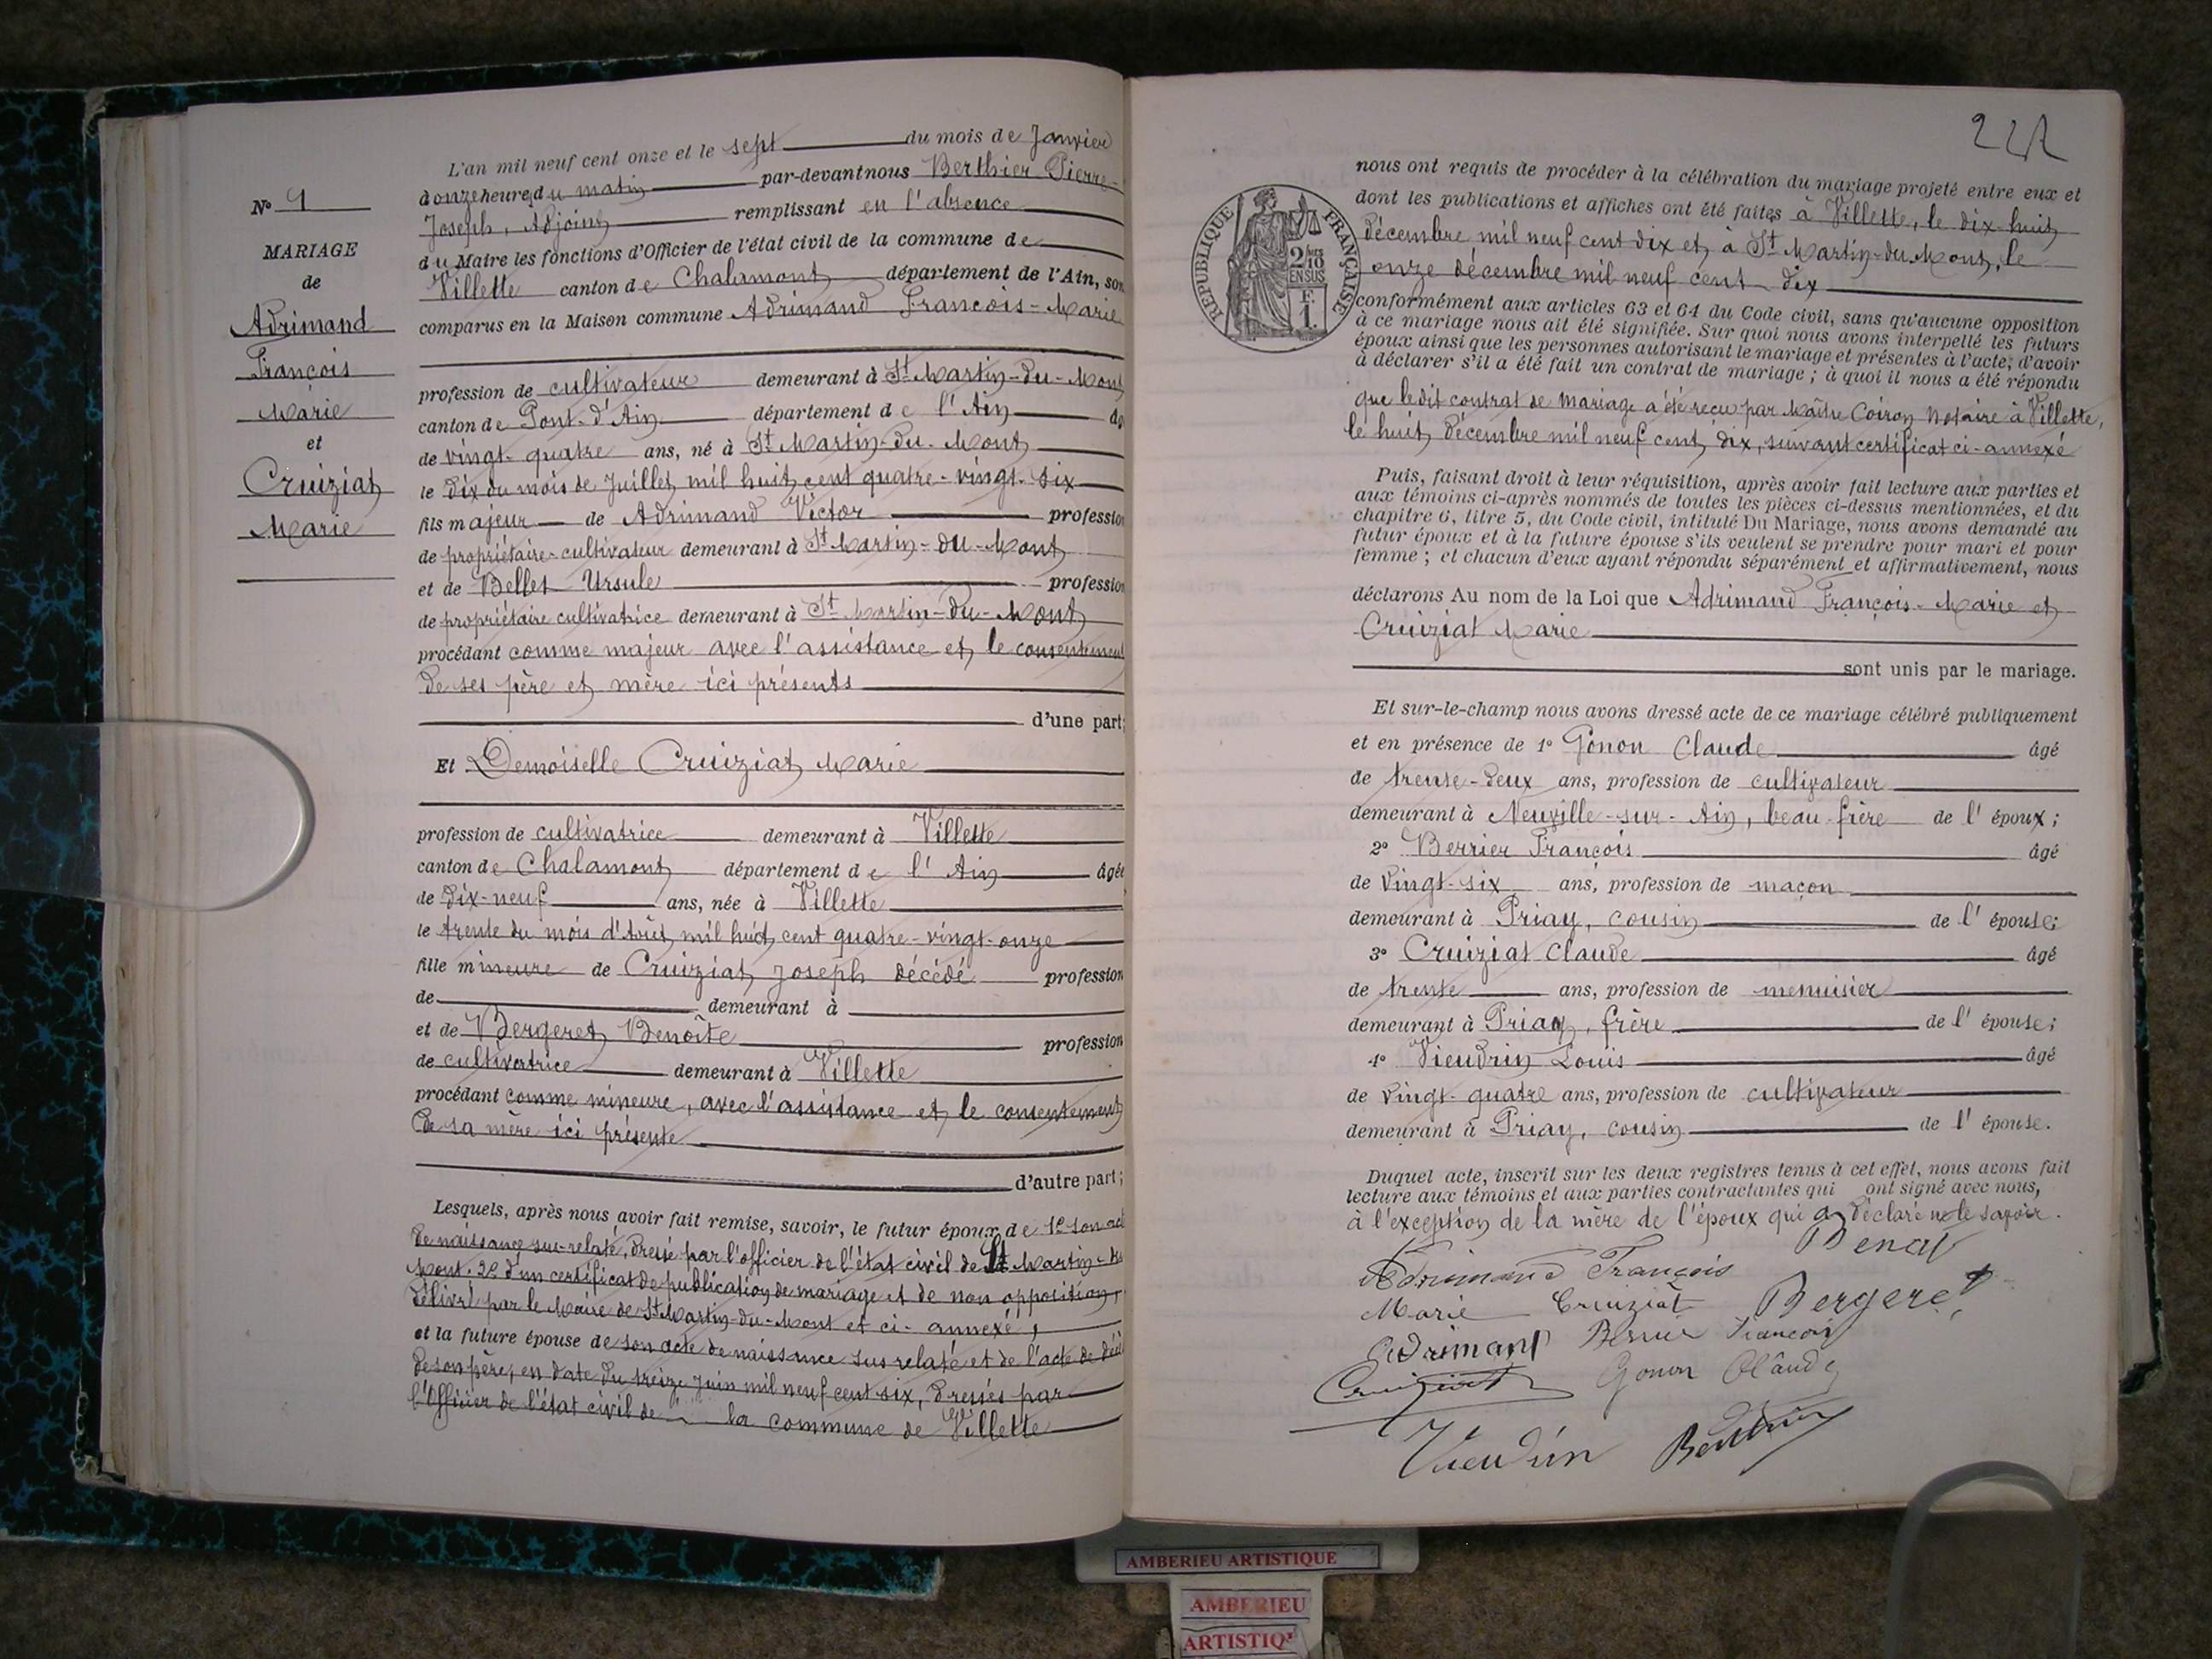 L'an mil neuf cent onze et le sept du mois de Janvier
à onze heure du matin par-devant nous Berthier Pierre-
Joseph, Adjoint remplissant en l'absence
du Maire les fonctions d'Officier de l'état civil de la commune de
Villette canton de Chalamont département de l'Ain, son
comparus en la Maison commune Adrimand François-Marie
profession de cultivateur demeurant à St Martin-du-Mont
canton de Pont-d'Ain département de l'Ain âg
de vingt-quatre ans, né à St Martin-du-Mont
le dix du mois de Juillet mil huit cent quatre-vingt-six
fils majeur de Adrimand Victor professio
de propriétaire-cultivateur demeurant à St Martin-du-Mont
et de Bellet Ursule profession
de propriétaire cultivatrice demeurant à St Martin-du-Mont
procédant comme majeur avec l'assistance et le consentement
de ses père et mère ici présents
d'une part;
Et Demoiselle Cruiziat Marie
profession de cultivatrice demeurant à Villette
canton de Chalamont département de l'Ain âgée
de dix-neuf ans, née à Villette
le trente du mois d'Août mil huit cent quatre-vingt-onze
fille mineure de Cruiziat Joseph décédé profession
de demeurant à
et de Bergeret Benoîte profession
de cultivatrice demeurant à Villette
procédant comme mineure, avec l'assistance et le consentement
de sa mère ici présente
d'autre part;
Lesquels, après nous avoir fait remise, savoir, le futur époux de 1º son act
de naissance sus-relaté, dressé par l'officier de l'état civil de St Martin-du
Mont. 2º d'un certificat de publication de mariage et de non opposition,
délivré par le Maire de St Martin-du-Mont et ci-annexé,
et la future épouse de son acte de naissance sus relaté et de l'acte de décè
de son père, en date du treize Juin mil neuf cent six, dressés par
l'Officier de l'état civil de la commune de Villette
Nº 1
MARIAGE
de
Adrimand
François
Marie
et
Cruiziat
Marie
RÉPUBLIQUE FRANÇAISE
2/10
EN SUS
F.
1.
nous ont requis de procéder à la célébration du mariage projeté entre eux et
dont les publications et affiches ont été faites à Villette, le dix-huit
décembre mil neuf cent dix et à St Martin-du-Mont, le
onze décembre mil neuf cent dix
conformément aux articles 63 et 64 du Code civil, sans qu'aucune opposition
à ce mariage nous ait été signifiée. Sur quoi nous avons interpellé les futurs
époux ainsi que les personnes autorisant le mariage et présentes à l'acte, d'avoir
à déclarer s'il a été fait un contrat de mariage; à quoi il nous a été répondu
que ledit contrat de mariage a été reçu par Maître Coiron Notaire à Villette,
le huit décembre mil neuf cent dix, suivant certificat ci-annexé
Puis, faisant droit à leur réquisition, après avoir fait lecture aux parties et
aux témoins ci-après nommés de toutes les pièces ci-dessus mentionnées, et du
chapitre 6, titre 5, du Code civil, intitulé Du Mariage, nous avons demandé au
futur époux et à la future épouse s'ils veulent se prendre pour mari et pour
femme; et chacun d'eux ayant répondu séparément et affirmativement, nous
déclarons Au nom de la Loi que Adrimand François-Marie et
Cruiziat Marie
sont unis par le mariage.
Et sur-le-champ nous avons dressé acte de ce mariage célébré publiquement
et en présence de 1º Gonon Claude âgé
de trente-deux ans, profession de cultivateur
demeurant à Neuville-sur-Ain, beau-frère de l'époux;
2º Berrier François âgé
de vingt-six ans, profession de maçon
demeurant à Priay, cousin de l'épouse;
3º Cruiziat Claude âgé
de trente ans, profession de menuisier
demeurant à Priay, frère de l'épouse;
4º Vieudrin Louis âgé
de vingt-quatre ans, profession de cultivateur
demeurant à Priay, cousin de l'épouse.
Duquel acte, inscrit sur les deux registres tenus à cet effet, nous avons fait
lecture aux témoins et aux parties contractantes qui ont signé avec nous,
à l'exception de la mère de l'époux qui a déclaré ne le savoir.
Adrimand François
Marie Cruiziat Bergeret
Adrimant Berrier François
Cruiziat Gonon Claude
Vieudrin Berthier
AMBERIEU ARTISTIQUE
AMBERIEU
ARTISTIQ